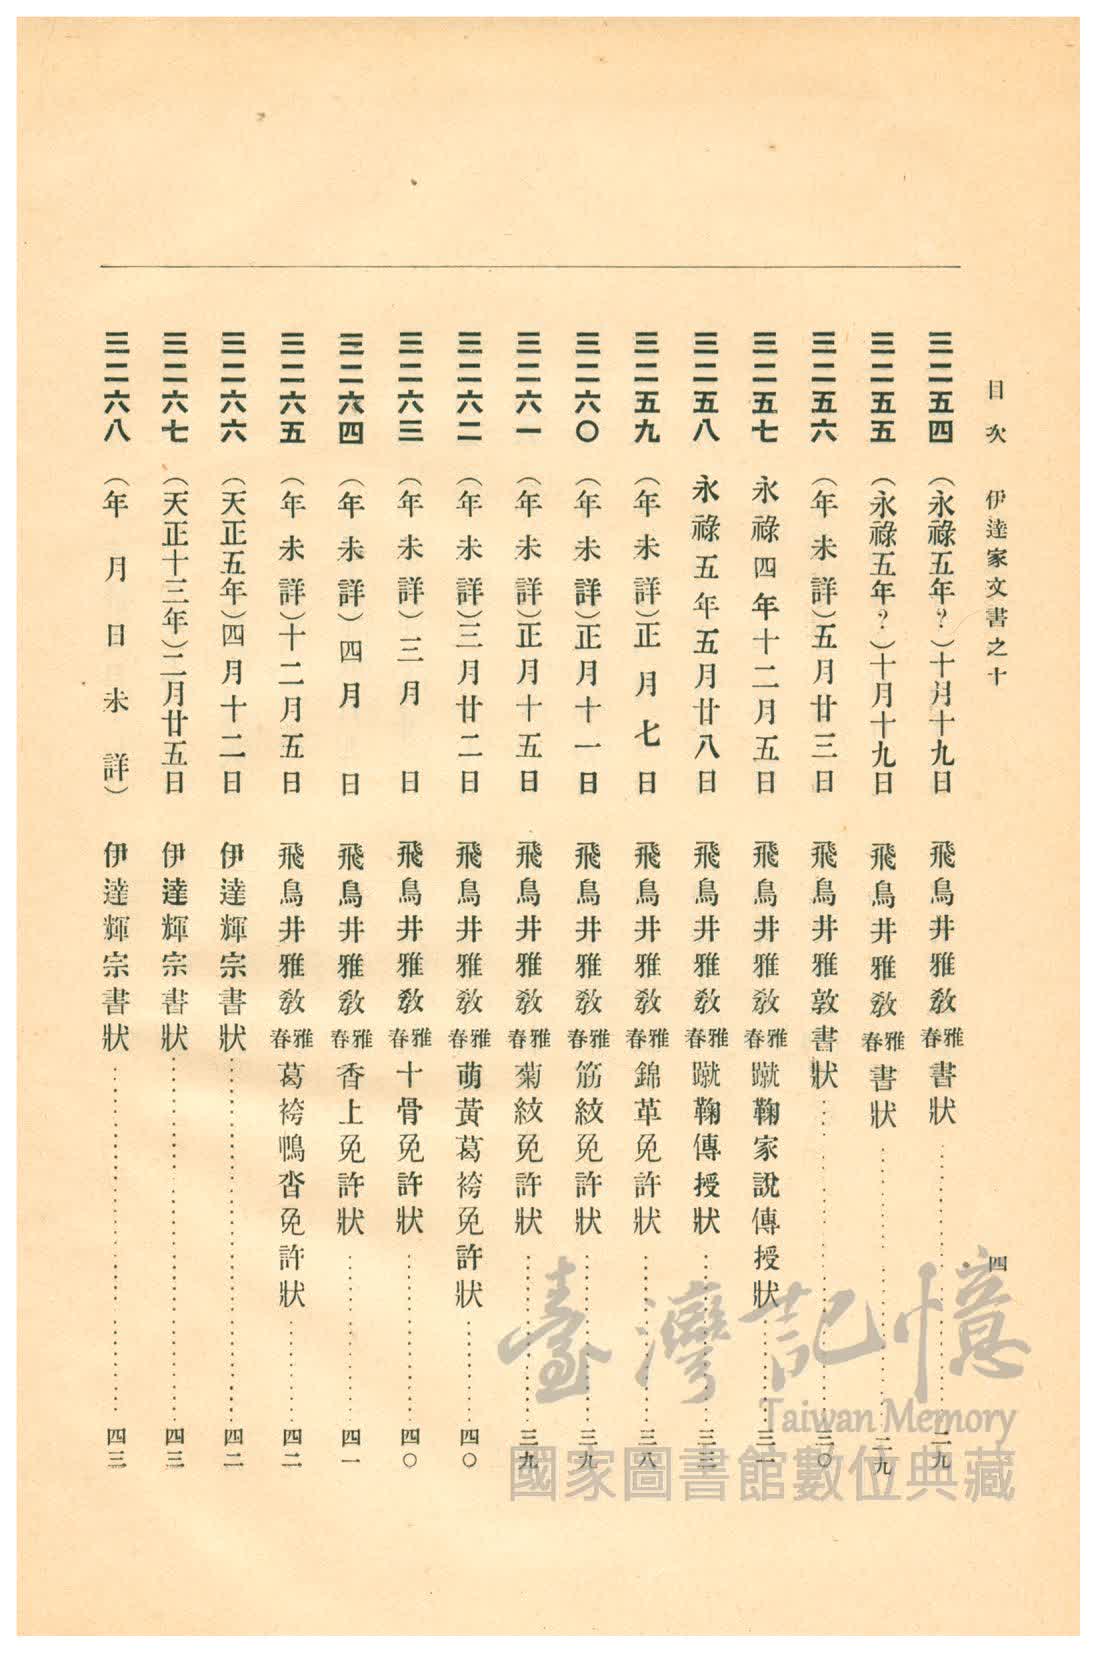 目次 伊達家文書之十 四
三二五四 (永祿五年?)十月十九日 飛鳥井雅敎雅春書狀 二九
三二五五 (永祿五年?)十月十九日 飛鳥井雅敎雅春書狀 二九
三二五六 (年未詳)五月廿三日 飛鳥井雅敦書狀 三〇
三二五七 永祿四年十二月五日 飛鳥井雅敎雅春蹴鞠家說傳授狀 三一
三二五八 永祿五年五月廿八日 飛鳥井雅敎雅春蹴鞠傳授狀 三三
三二五九 (年未詳)正月七日 飛鳥井雅敎雅春錦革免許狀 三八
三二六〇 (年未詳)正月十一日 飛鳥井雅敎雅春筋紋免許狀 三九
三二六一 (年未詳)正月十五日 飛鳥井雅敎雅春菊紋免許狀 三九
三二六二 (年未詳)三月廿二日 飛鳥井雅敎雅春萌黃葛袴免許狀 四〇
三二六三 (年未詳)三月 日 飛鳥井雅敎雅春十骨免許狀 四〇
三二六四 (年未詳)四月 日 飛鳥井雅敎雅春香上免許狀 四一
三二六五 (年未詳)十二月五日 飛鳥井雅敎雅春葛袴鴨沓免許狀 四二
三二六六 (天正五年)四月十二日 伊達輝宗書狀 四二
三二六七 (天正十三年)二月廿五日 伊達輝宗書狀 四三
三二六八 (年月日未詳) 伊達輝宗書狀 四三
臺灣記憶
Taiwan Memory
國家圖書館數位典藏